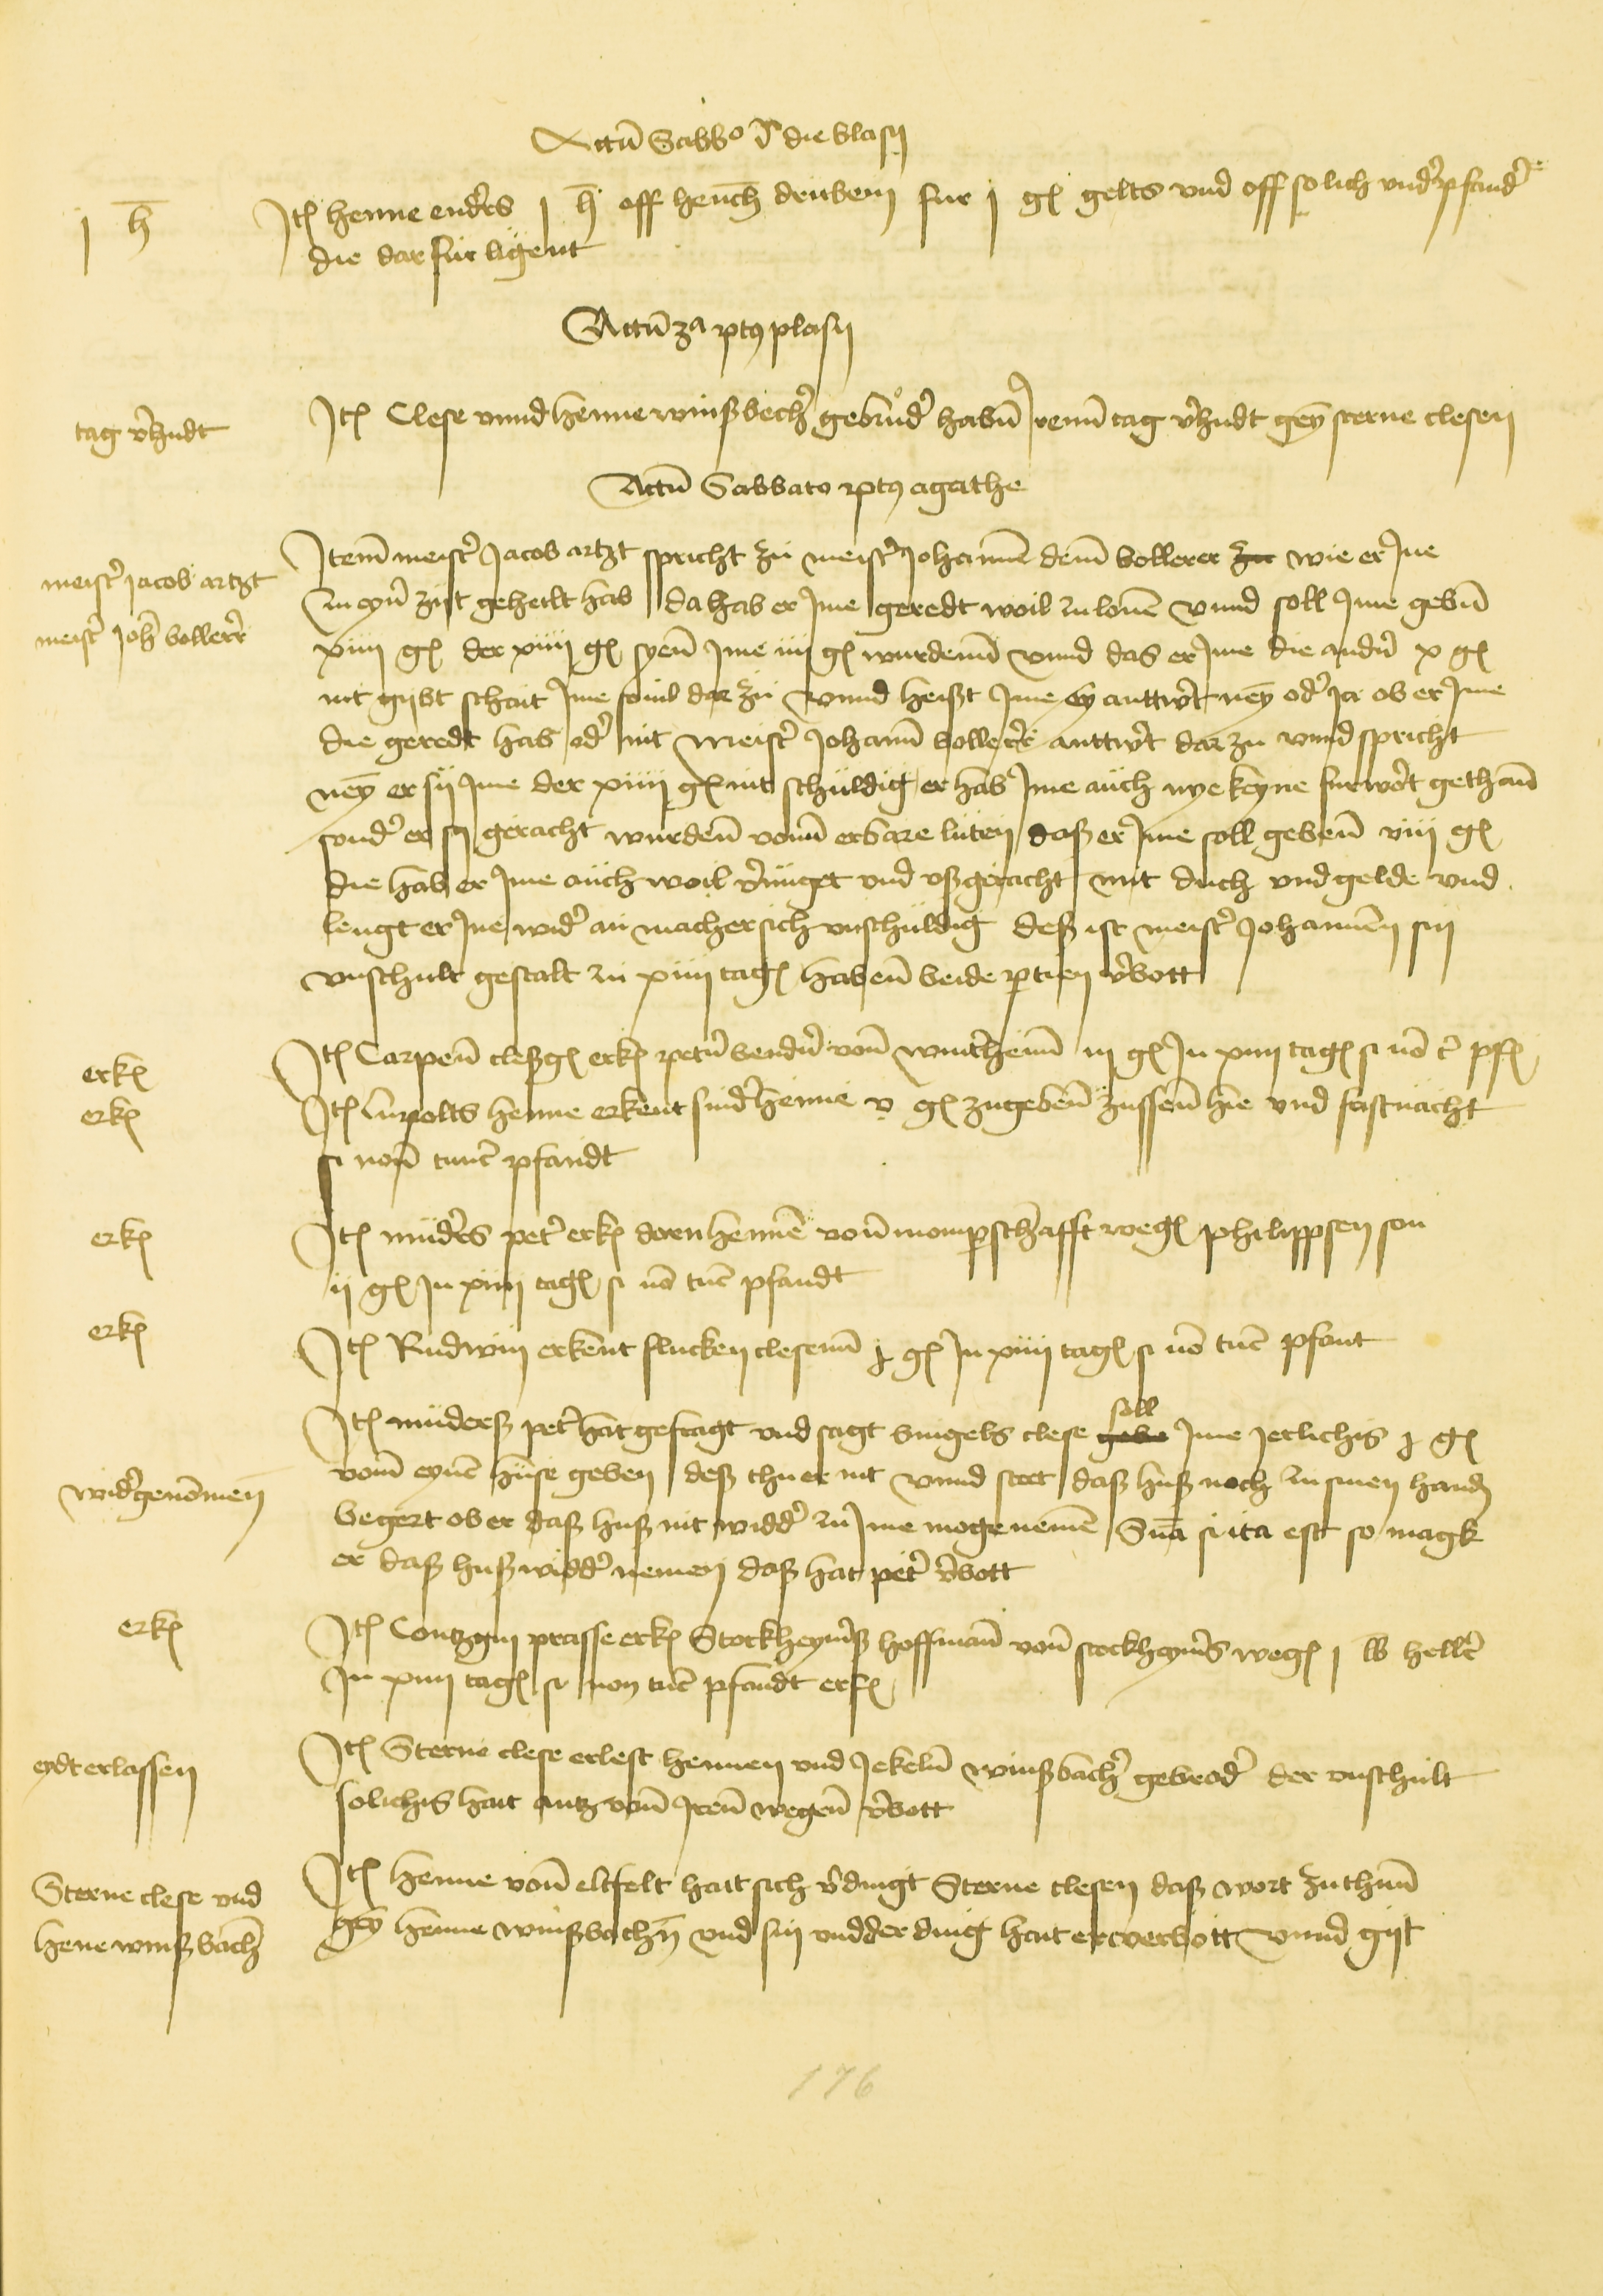 Actū Sabbo ī die blasij
j h̄
Itē henne endrēs j h̄ off hench drubein fur j gl gelts vnd off solich vnd'pfand'
die dar fur ligent
Actū 3a pꝰ plasij
tag v'hudt
Itē Clese vnnd henne winßbech' gebrud' habn̄ Irenn̄ tag v'hudt gey̅ sterne clesen
Actū Sabbato pꝰ agathe
meist' Jacob artzt
meist' Joh' bollerr'
Item̄ meist' Jacob artzt spricht zu meist' Johannē dem̄ bollerer wie er Ine
In eyn' zijt geheilt hab da hab er Ime geredt woil zu lonē vnnd soll Ime gebn̄
xiiij gl der xiiij gl syen̄ Ime iiij gl wurdenn̄ vnnd das er Ime die andn̄ x gl
nit gijbt schait Ime souil dar zu vnnd heißt Ime ey antwt' ney̅ od' Ja ob er Ime
die geredt hab od' nit Meist' Johann̄ bollerr' anttwt' dar zu vnnd spricht
ney̅ er sij Ime der xiiij gl nit schuldig er hab Ime auch nye keyne furwt' gethan̄
sond' er sij geracht wurden̄ vonn̄ erbare luten daß er Ime soll geben̄ viij gl
die hab er Ime auch woil v'nuget vnd vßgeracht mit duch vnd gelde vnd
lengt er Ine wid' an mach er sich vnschuldig deß ist meist' Johannen̄ sin
vnschult gestalt zu xiiij tagē haben̄ beide ptien v'bott
erkē
Itē Carpen̄ cleßgē erkē petn̄ bendn̄ von̄ wintheim̄ iij gl In xiiij tagē si nō tc̄ pfē
erkē
Itē lupolts henne erkent sind'henne v gl zugeben̄ zussen̄ hie vnd fastnacht
si non̄ tunc̄ pfandt
erkē
Itē mud'rs pet' erkē dorrhennē von̄ mompschafft wegē philippsen son
ij gl In xiiij tagē si nō tnc̄ pfandt
erkē
Itē Rudwin erkent flucken clesenn̄ j gl In xiiij tagē si nō tnc̄ pfant
wid'genōmen
Itē muderß pet' hat gefragt vnd sagt bingels clese soll Ime Jerlichis j gl
vom̄ eynē huse geben deß thu er nit vnnd stet daß huß noch In sinen handē
begert ob er daß huß nit widd' zu Ime moge nemen Snā si ita est so magk
er daß huß widd' nemen daß hat pet' v'bott
erkē
Itē Contzgin prasse erkē Stockheym's hoffman̄ von̄ stockheym's wegē j lb hell'
In xiiij tagē si non tnc̄ pfandt erfē
eydt erlassen
Itē Sterne clese erlest hennen vnd Jekeln̄ winßbach' gebrod' der vnschult
solichis hait antz von̄ Iren̄ wegen̄ v'bott
Sterne clese vnd
hene winßbach'
Itē henne von̄ eltfelt hait sich v'dingt Sterne clesen daß wort zuthun̄
gey̅ henne winßbachn̄ vnd sin vndderding hait er verbott vnnd gijt
176